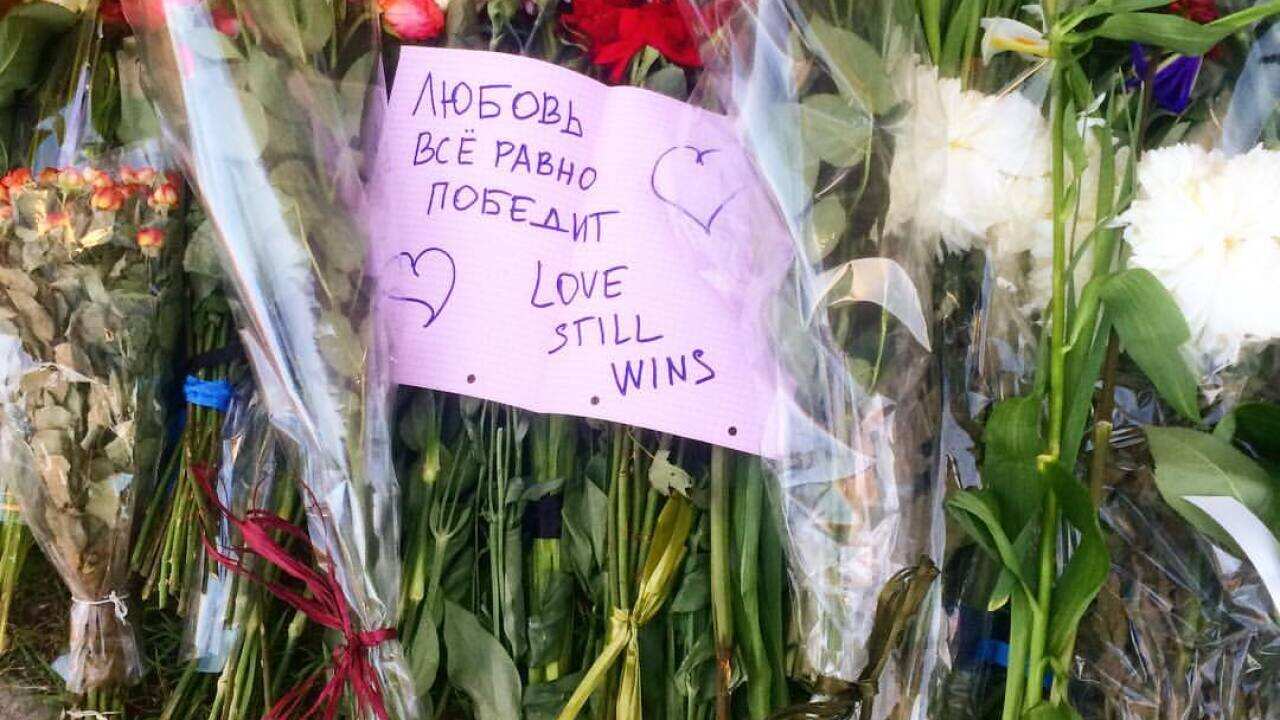 ЛЮБОВЬ
ВСЁ РАВНО
ПОБЕДИТ
LOVE
STILL
WINS